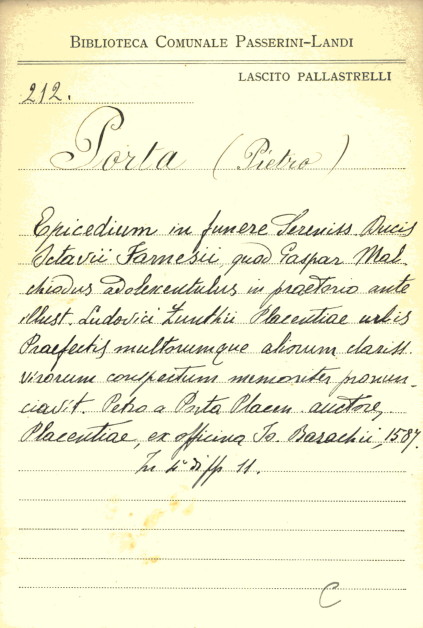 BIBLIOTECA COMUNALE PASSERINI-LANDI
LASCITO PALLASTRELLI
212.
Porta (Pietro)
Epicedium in funere Sereniss. Ducis
Octavii Farnesii, quod Gaspar Mal-
chiodus adolescentulus in praetorio ante
illust. Ludovici Zunthii Placentiae urbis
Praefectis multorumque aliorum clariss.
virorum conspectum memoriter pronun-
ciavit. Petro a Porta Placen. auctore,
Placentiae, ex officina Io. Bazachii, 1587.
In 4° di ff 11.
C